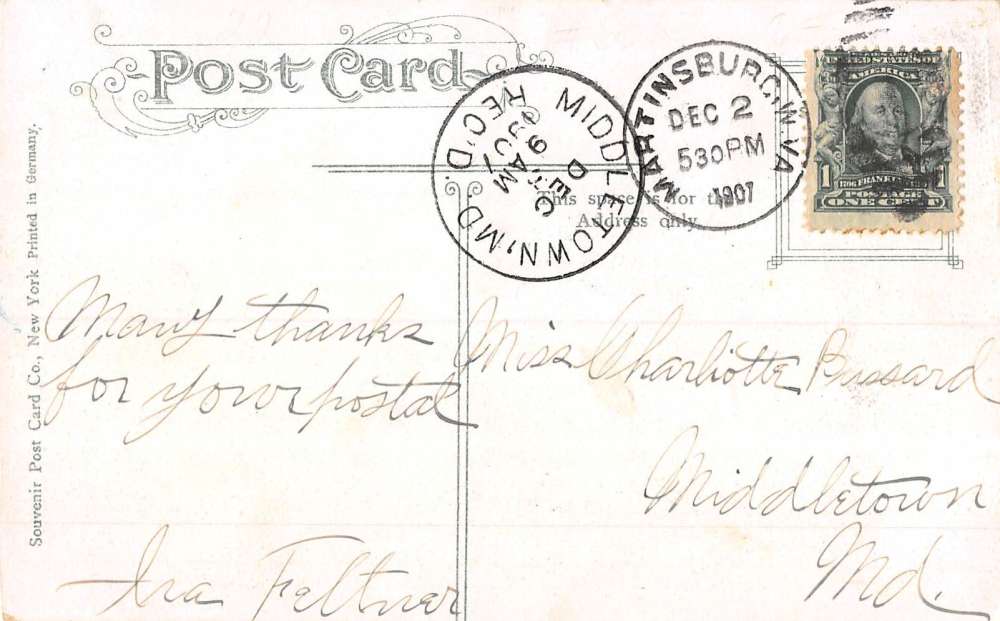 Post Card
MARTINSBURG, W. VA
DEC 2
530 PM
1907
MIDDLETOWN, MD.
REC'D.
DEC
9 AM
1907
UNITED STATES OF
AMERICA
1706 FRANKLIN
1 1
POSTAGE
ONE CENT
This space is for the
Address only
Souvenir Post Card Co., New York Printed in Germany.
Many thanks
for your postal
Ira Feltner
Miss Charliotte Bussard
Middletown
Md.